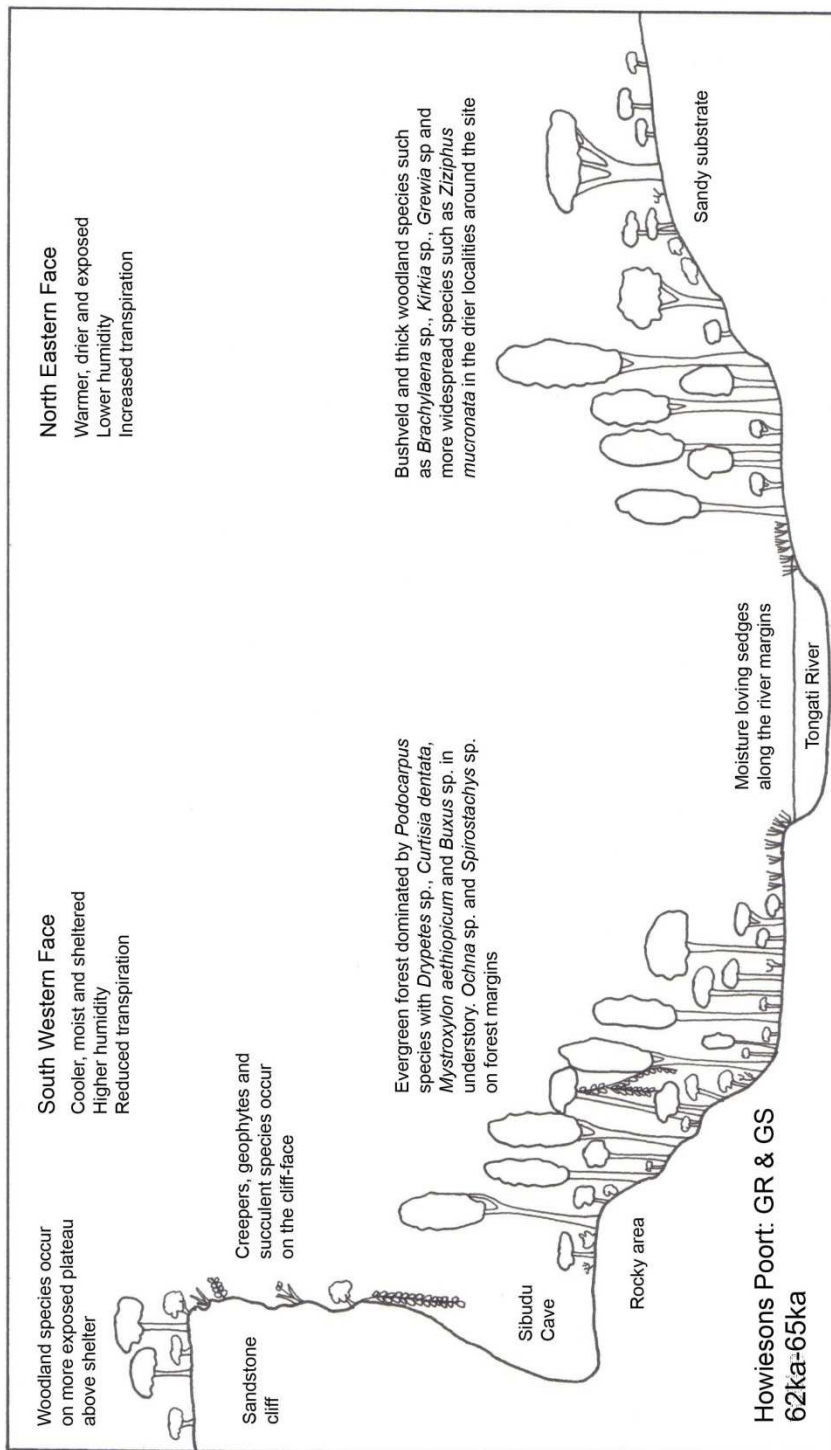 Woodland species occur
on more exposed plateau
above shelter
South Western Face
Cooler, moist and sheltered
Higher humidity
Reduced transpiration
North Eastern Face
Warmer, drier and exposed
Lower humidity
Increased transpiration
Creepers, geophytes and
succulent species occur
on the cliff-face
Sandstone
cliff
Evergreen forest dominated by Podocarpus
species with Drypetes sp., Curtisia dentata,
Mystroxylon aethiopicum and Buxus sp. in
understory. Ochna sp. and Spirostachys sp.
on forest margins
Bushveld and thick woodland species such
as Brachylaena sp., Kirkia sp., Grewia sp and
more widespread species such as Ziziphus
mucronata in the drier localities around the site
Sibudu
Cave
Rocky area
Moisture loving sedges
along the river margins
Sandy substrate
Tongati River
Howiesons Poort: GR & GS
62ka-65ka